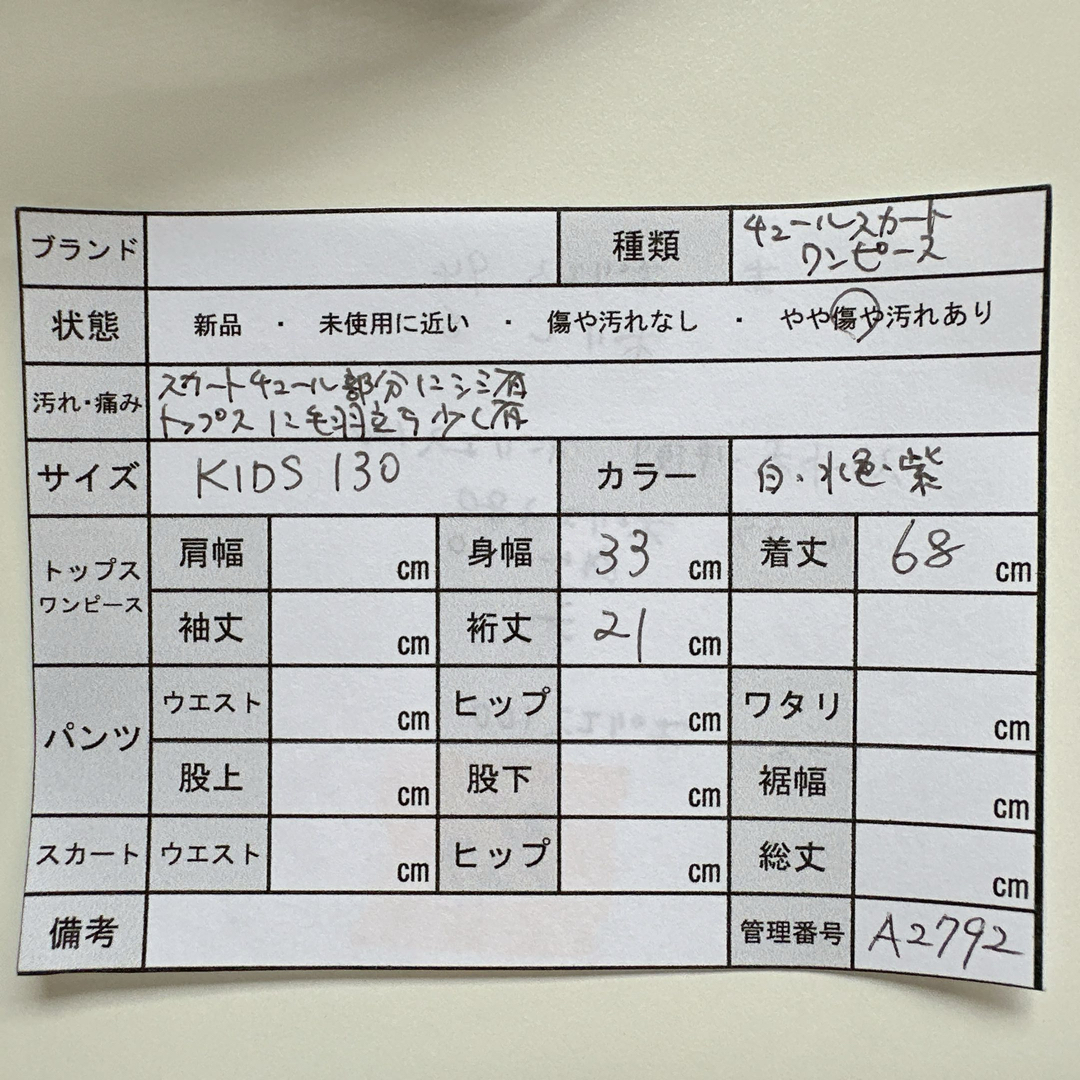 ブランド 種類 チュールスカート
ワンピース
状態 新品 ・ 未使用に近い ・ 傷や汚れなし ・ やや傷や汚れあり
汚れ・痛み スカートチュール部分にシミ有
トップスに毛羽立ち少し有
サイズ KIDS 130 カラー 白、水色、紫
トップス
ワンピース
肩幅 cm 身幅 33 cm 着丈 68 cm
袖丈 cm 裄丈 21 cm
パンツ
ウエスト cm ヒップ cm ワタリ cm
股上 cm 股下 cm 裾幅 cm
スカート ウエスト cm ヒップ cm 総丈 cm
備考 管理番号 A2792